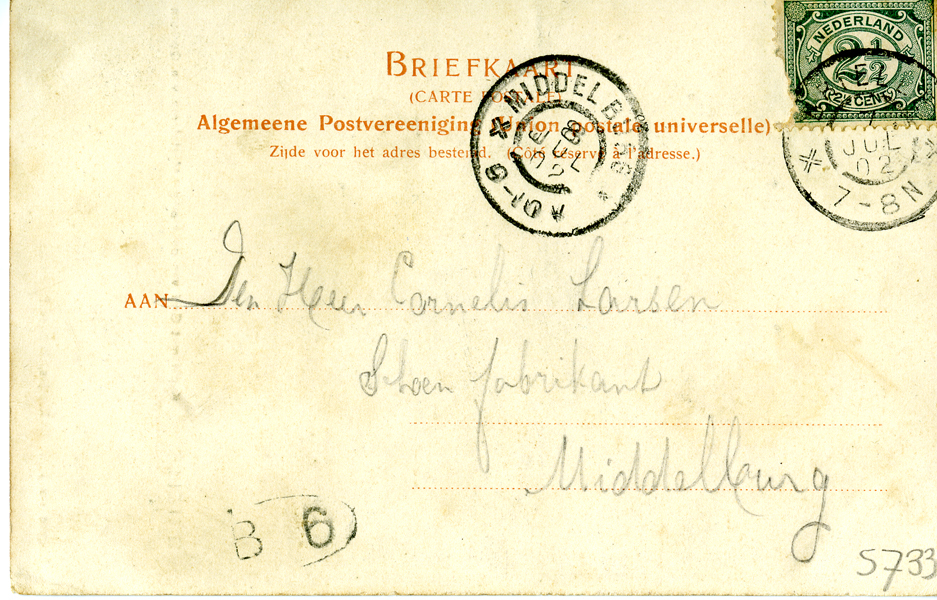 BRIEFKAART
(CARTE POSTALE)
Algemeene Postvereeniging (Union postale universelle)
Zijde voor het adres bestemd. (Côté réservé à l'adresse.)
NEDERLAND
2½
(2½ CENT)
MIDDELBURG
JUL
02
7-8N
AAN Den Heer Cornelis Larsen
Schoen fabrikant
Middelburg
B 6
5733